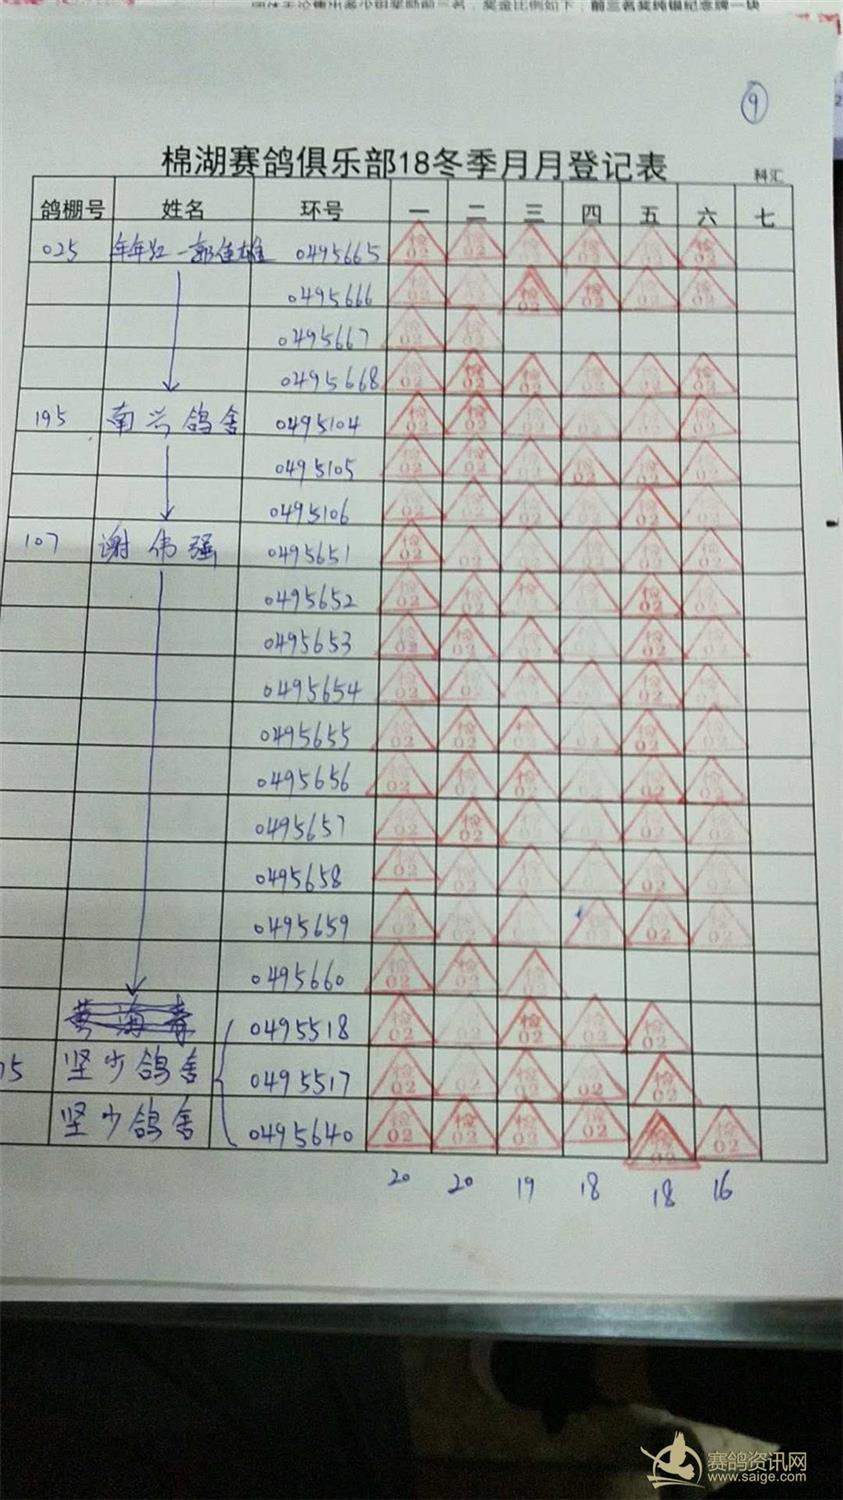 ⑨
棉湖赛鸽俱乐部18冬季月月登记表 科汇
鸽棚号 姓名 环号 一 二 三 四 五 六 七
025 年年红-郭佳雄 0495665 检02 检02 检02 检02 检02 检02
0495666 检02 检02 检02 检02 检02 检02
0495667 检02 检02
0495668 检02 检02 检02 检02 检02 检02
195 南兴鸽舍 0495104 检02 检02 检02 检02 检02 检02
0495105 检02 检02 检02 检02 检02 检02
0495106 检02 检02 检02 检02 检02 检02
107 谢伟强 0495651 检02 检02 检02 检02 检02 检02
0495652 检02 检02 检02 检02 检02 检02
0495653 检02 检02 检02 检02 检02 检02
0495654 检02 检02 检02 检02 检02 检02
0495655 检02 检02 检02 检02 检02 检02
0495656 检02 检02 检02 检02 检02 检02
0495657 检02 检02 检02 检02 检02 检02
0495658 检02 检02 检02 检02 检02 检02
0495659 检02 检02 检02 检02 检02 检02
0495660 检02 检02 检02
0495518 检02 检02 检02 检02 检02
坚少鸽舍 0495517 检02 检02 检02 检02 检02
坚少鸽舍 0495640 检02 检02 检02 检02 检02 检02
20 20 19 18 18 16
赛鸽资讯网
www.saige.com